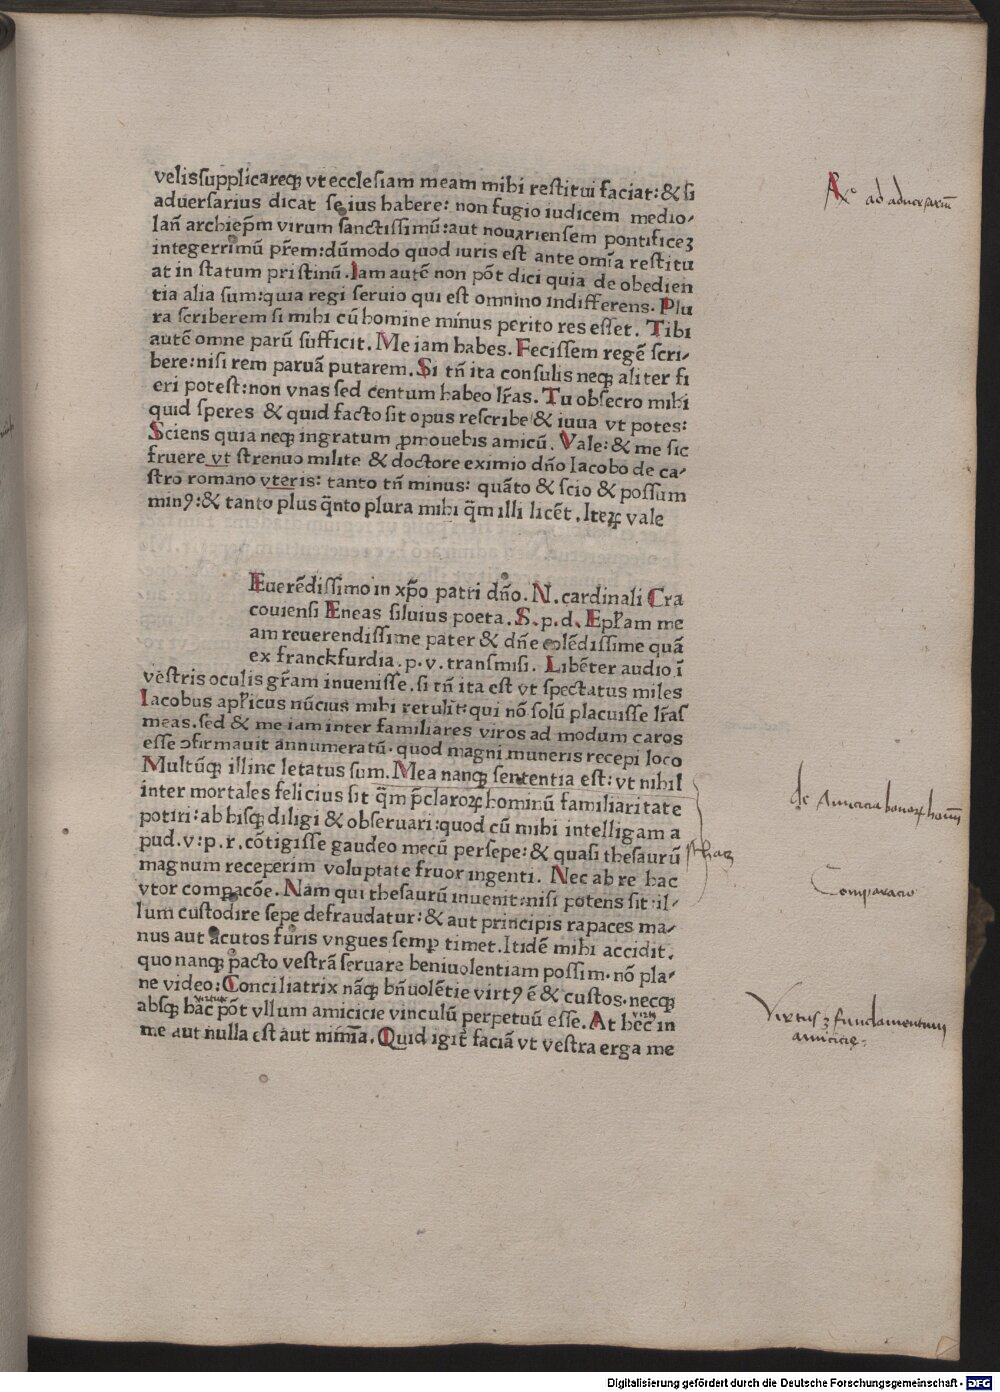 velis supplicareqꝫ vt ecclesiam meam mihi restitui faciat: & si
aduersarius dicat se ius habere: non fugio iudicem medio⸗
lañ archiep̄m virum sanctissimū: aut nouariensem pontificeꝫ
integerrimū pr̄em: dūmodo quod iuris est ante om̄ia restitu
at in statum pristinū. Iam autē non pōt dici quia de obedien
tia alia sum: quia regi seruio qui est omnino indifferens. Plu
ra scriberem si mihi cū homine minus perito res esset. Tibi
autē omne parū sufficit. Me iam habes. Fecissem regē scri⸗
bere: nisi rem paruā putarem. Si tñ ita consulis neqꝫ aliter fi
eri potest: non vnas sed centum habeo lr̄as. Tu obsecro mihi
quid speres & quid facto sit opus rescribe & iuua vt potes:
Sciens quia neqꝫ ingratum ꝓmouebis amicū. Vale: & me sic
fruere vt strenuo milite & doctore eximio dño Iacobo de ca⸗
stro romano vteris: tanto tñ minus: quāto & scio & possum
minꝰ: & tanto plus q̄nto plura mihi q̄m illi licēt. Iteꝝ vale
Euerēdissimo in xp̄o patri dño. N. cardinali Cra
couiensi Eneas siluius poeta. S. p. d. Epl̄am me
am reuerendissime pater & dñe colēdissime quā
ex franckfurdia. p. v. transmisi. Libēter audio ī
vestris oculis gr̄am inuenisse. si tñ ita est vt spectatus miles
Iacobus apl̄icus nūcius mihi retulit: qui nō solū placuisse lr̄as
meas. sed & me iam inter familiares viros admodum caros
esse ↄfirmauit annumeratū. quod magni muneris recepi loco
Multūqꝫ illinc letatus sum. Mea nanqꝫ sententia est: vt nihil
inter mortales felicius sit q̄m p̄claroꝝ hominū familiaritate
potiri: ab hisqꝫ diligi & obseruari: quod cū mihi intelligam a
pud. v: p. r. cōtigisse gaudeo mecū persepe: & quasi thesaurū
magnum receperim voluptate fruor ingenti. Nec ab re hac
vtor compacōe. Nam qui thesaurū inuenit: nisi potens sit il⸗
lum custodire sepe defraudatur: & aut principis rapaces ma⸗
nus aut acutos furis vngues semꝑ timet. Itidē mihi accidit.
quo nanqꝫ pacto vestrā seruare beniuolentiam possim. nō pla⸗
ne video: Conciliatrix nāqꝫ bñuolētie virtꝰ ē & custos. necqꝫ
absqꝫ hac pōt vllum amicicie vinculū perpetuū esse. At hec in
me aut nulla est aut nim̄ia. Quid igit̄ faciā vt vestra erga me
ad aduersariū
de Amicicia bonoꝝ hom̄
Comparacio
Virtus ꝫ fundamentum
amicicie
virtus
Digitalisierung gefördert durch die Deutsche Forschungsgemeinschaft - DFG